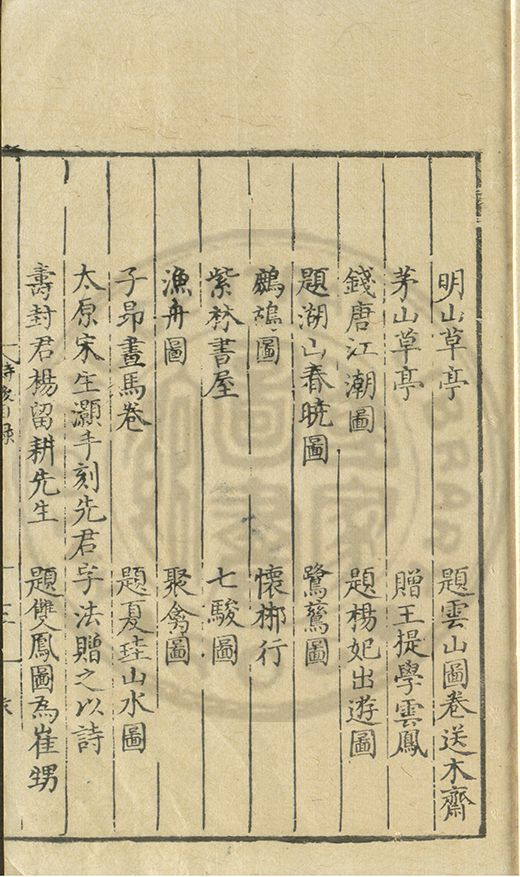 明山草亭　題雲山圖卷送木齋
茅山草亭　贈王提學雲鳳
錢唐江潮圖　題楊妃出遊圖
題湖山春曉圖　鷺鷥圖
鸕鷀圖　懷梆行
紫林書屋　七駿圖
漁舟圖　聚禽圖
子昂畫馬卷　題夏珪山水圖
太原宋生灝手刻先君字法贈之以詩
壽封君楊留耕先生　題雙鳳圖為崔甥